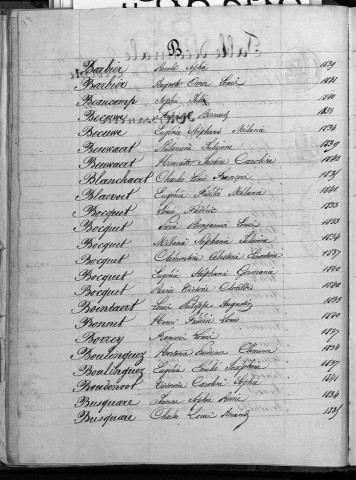 B
Barbier Sophie 1839
Barbier Auguste Omer Louis 1841
Beaucamp Sophie Julie 1840
Becuwe Bernard 1838
Becuwe Eugénie Stéphanie Mélanie 1834
Beuwaert Philomène 1839
Beuwaert Henriette Justine Caroline 1843
Blanchaert Charles Louis François 1835
Blaevoet Eugénie Mélanie 1840
Bocquet Louis Frédéric 1833
Bocquet Benjamin Louis 1833
Bocquet Mélanie Stéphanie 1834
Bocquet Clémentine Célestine 1837
Bocquet Eugénie Stéphanie 1840
Bocquet Marie Victoire Clotilde 1840
Bonntaert Louis Philippe Augustin 1838
Bonnet Henri Frédéric Louis 1840
Borrey François Louis 1837
Boulenguez Clémence 1834
Boulenguez Eugénie Emilie Joséphine 1837
Boudenoot Victorine Caroline Sophie 1841
Busquare Sophie 1834
Busquare Charles Louis Amand 1835